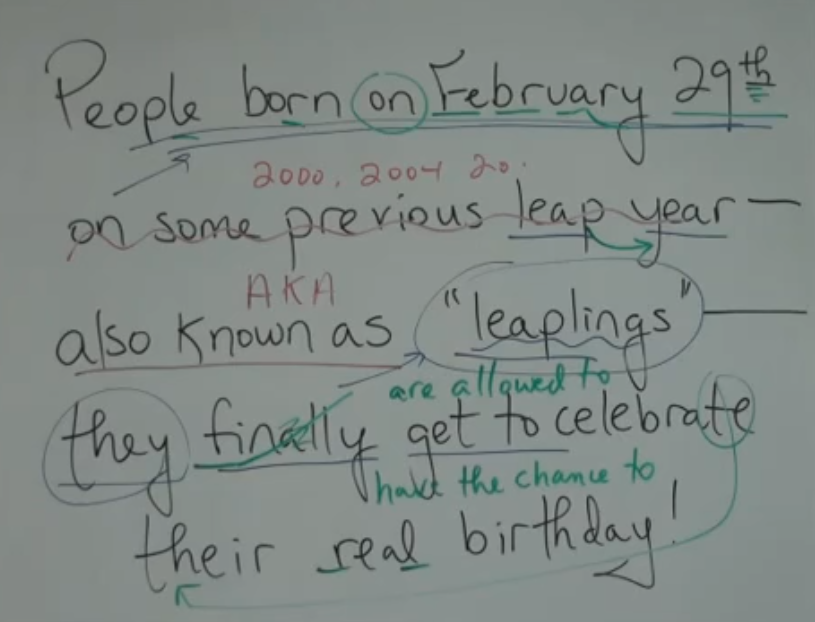 People born on February 29th
2000, 2004 20.
on some previous leap year —
AKA
also known as "leaplings" —
are allowed to
they finally get to celebrate
have the chance to
their real birthday!